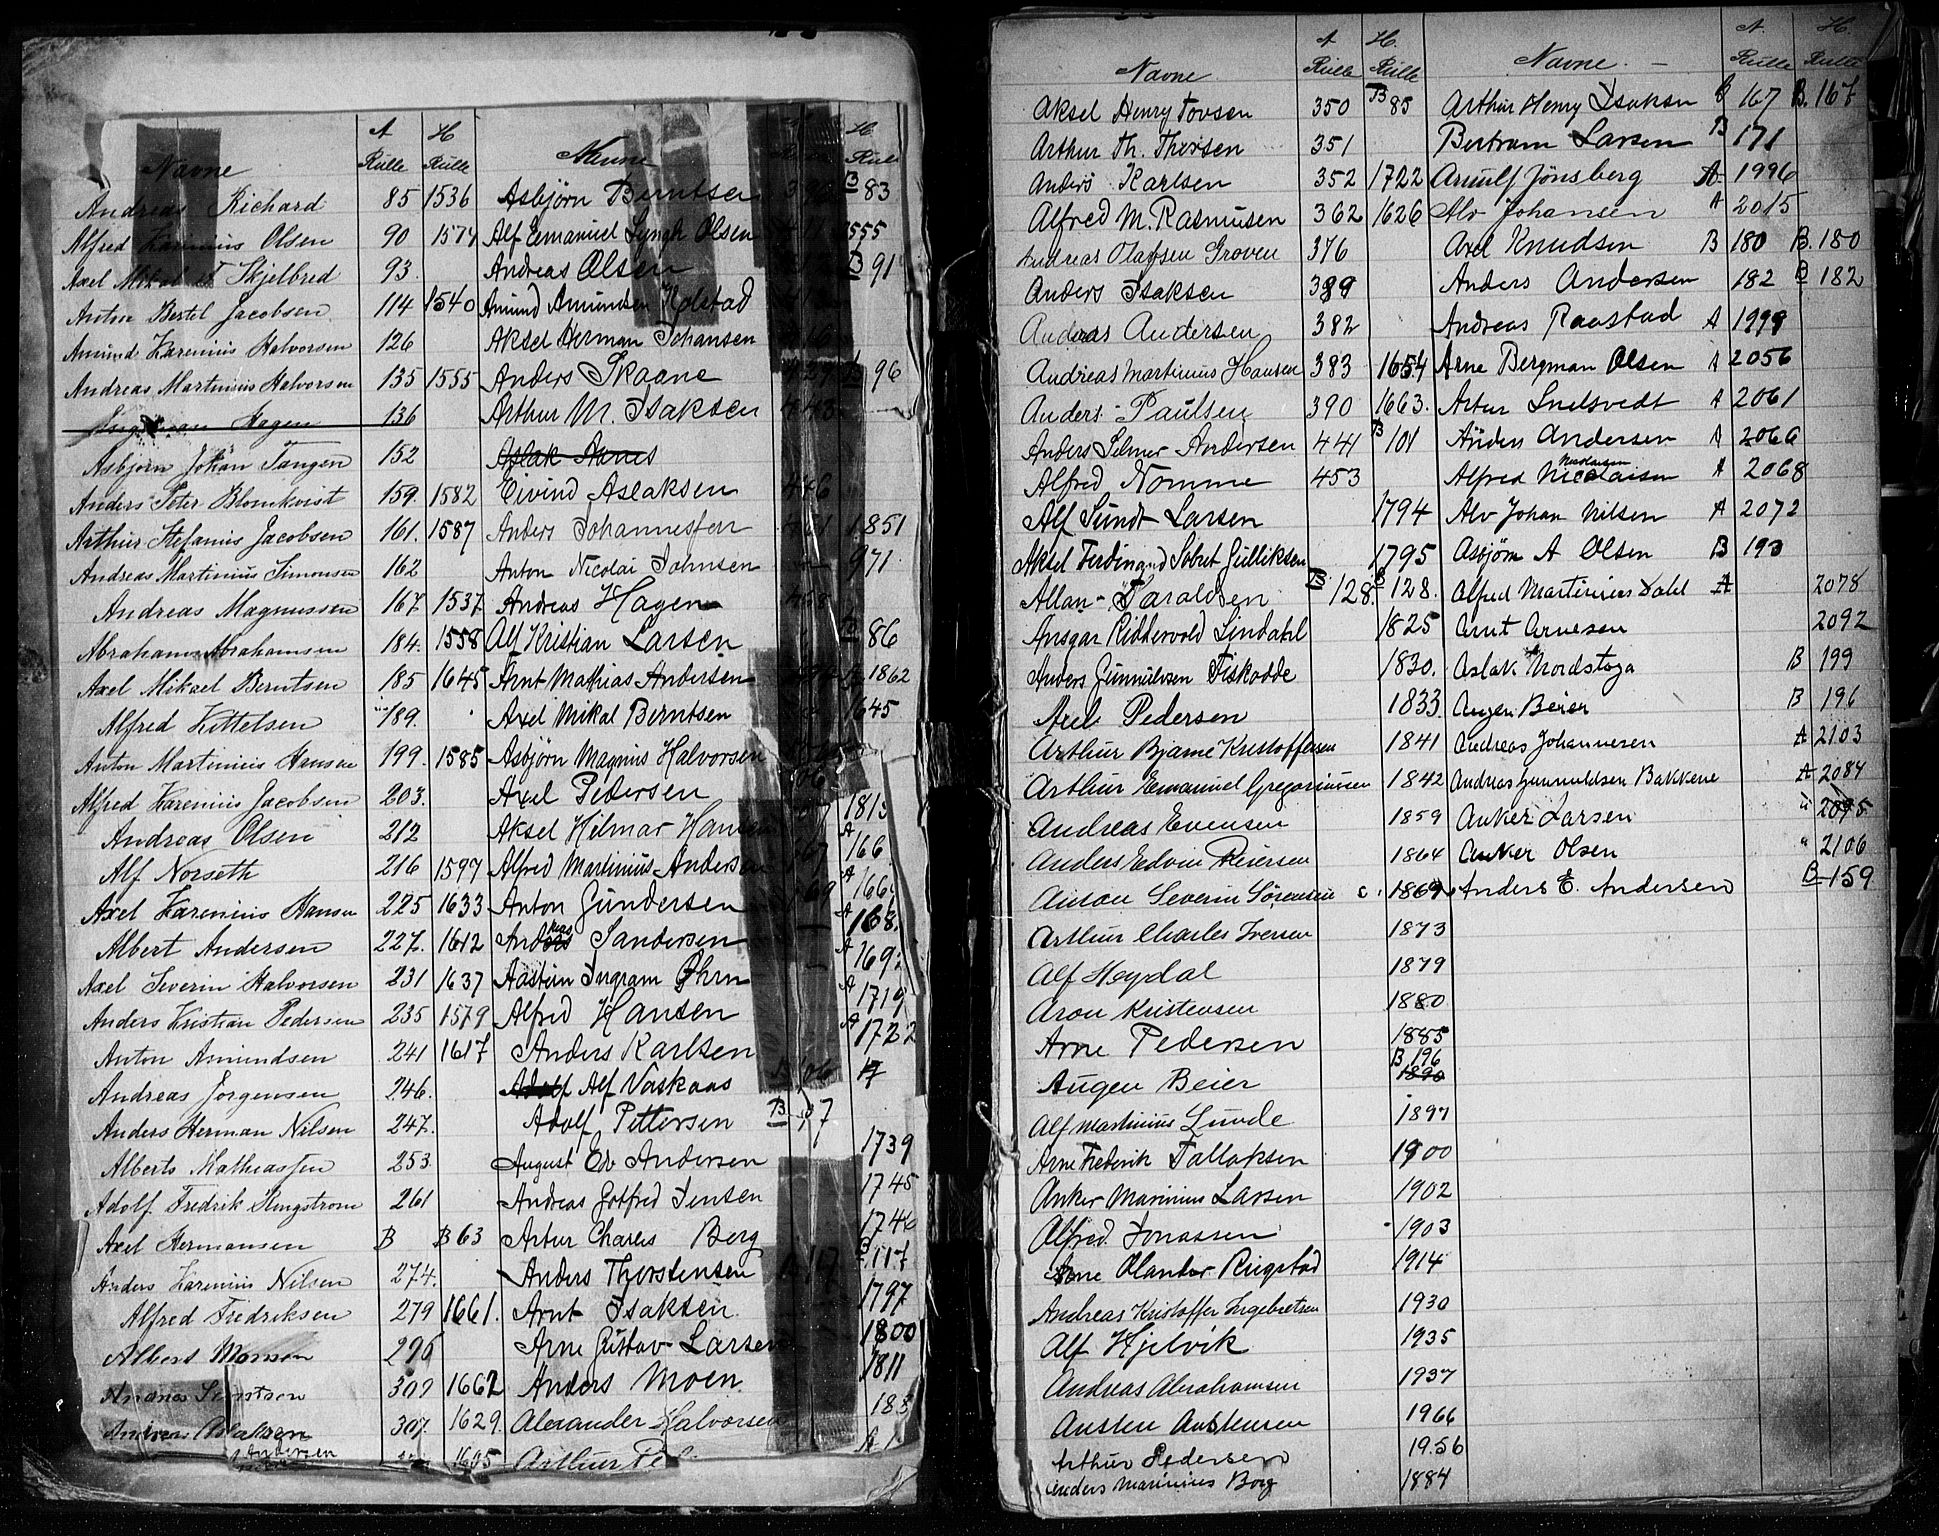 Navne A Rulle H Rulle
Andreas Richard 85 1536
Alfred Karenius Olsen 90 1574
Axel Mikal Skjelbred 93.
Anton Bertel Jacobsen 114 1540
Amund Karenius Halvorsen 126
Andreas Martinius Halvorsen 135 1555
Hagen 136
Asbjørn Johan Tangen 152
Anders Peter Blomkvist 159. 1582
Arthur Stefanus Jacobsen 161. 1587
Andreas Martinius Simonsen 162
Andreas Magnussen 167. 1537
Abraham Abrahamsen 184. 1558
Axel Mikael Berntsen 185 1645
Alfred Kittelsen 189.
Anton Martinius Hansen 199. 1585
Alfred Karenius Jacobsen 203.
Andreas Olsen 212
Alf Norseth 216 1597
Axel Karenius Hansen 225 1633
Albert Andersen 227. 1612
Axel Severin Halvorsen 231 1637
Anders Kristian Pedersen 235 1579
Anton Amundsen 241 1617
Andreas Jørgensen 246.
Anders Herman Nilsen 247.
Alberts Mathiassen 253
Adolf Fredrik Stengstrom 261
Axel Hermansen B B 63
Anders Karenius Nilsen 274.
Alfred Fredriksen 279 1661.
Albert Monsen 296
1662
307. 1629
Andersen 1605
Navne H Rulle
Asbjørn Berntsen B 83
Alf Emanuel Lyngh Olsen 1555
Andreas Olsen B 91
Amund Amundsen Kolstad
Aksel Herman Johansen
Anders Skaane 96
Arthur M. Isaksen
Aslak Aanes
Eivind Aslaksen 446
Anders Johannessen 1851
Anton Nicolai Johnsen 971
Andreas Hagen
Alf Kristian Larsen B 86
Arnt Mathias Andersen 1862
Axel Mikal Berntsen 1645
Asbjørn Magnus Halvorsen
Axel Pedersen
Aksel Hilmar Hansen 1815
Alfred Martinius Andersen A 166
Anton Gundersen A 166
Andreas Sandersen A 168.
Aastein Ingram Øhrn A 1692
Alfred Hansen A 1719
Anders Karlsen A 1722
Alf Vaskaas B 106
Adolf Pettersen B 97
August Edv Andersen 1739
Andreas Gotfred Jensen 1745
Artur Charles Berg 1746
Anders Thorstensen B 117
Arnt Isaksen 1797
Arne Gustav Larsen 1800
Anders Moen 1811
Alexander Halvorsen 183
Arthur Pe
Navne A Rulle H. Rulle
Aksel Henry Tovsen 350 B 85
Arthur Th. Thorsen 351
Anders Karlsen 352 1722
Alfred M. Rasmusen 362 1626
Andreas Olafsen Groven 376
Anders Isaksen 389
Andreas Andersen 382
Andreas Martinius Hansen 383 1654
Anders Paulsen 390 1663.
Anders Selmer Andersen 441 B 101
Alfred Nomme 453
Alf Sundt Larsen 1794
Aksel Ferdinand Sobret Gulliksen 1795
Allan Taraldsen B 128. B 128.
Ansgar Riddervold Lindahl 1825
Anders Gunnulvsen Fiskodde 1830.
Axel Pedersen 1833
Arthur Bjarne Kristoffersen 1841
Arthur Emanuel Gregoriussen 1842
Andreas Evensen 1859
Anders Edvin Reiersen 1864
Anton Severin Sørensen 1869
Arthur Charles Iversen 1873
Alf Heydal 1879
Aron Kristensen 1880
Arne Pedersen 1885
Augen Beier B 196 1890
Alf Martinius Lunde 1897
Arne Frederik Tallaksen 1900
Anker Marinius Larsen 1902
Alfred Jonassen 1903
Arne Olander Ringstad 1914
Andreas Kristoffer Ingebretsen 1930
Alf Hjelvik 1935
Andreas Abrahamsen 1937
Austen Austensen 1966
Arthur Pedersen 19.56
Anders Marinius Borg 1884
Navne. A. Rulle H. Rulle
Arthur Henry Isaksen B 167 B. 167
Bertram Larsen B 171
Arnulf Jönsberg A 1996
Alv Johansen A 2015
Axel Knudsen B 180 B. 180
Anders Andersen 182 B 182
Andreas Raastad A 1999
Arne Bergman Olsen A 2056
Artur Snelsvedt A 2061
Anders Andersen A 2066
Alfred Nicolaisen A 2068
Alv Johan Nilsen A 2072
Asbjørn A Olsen B 193
Alfred Martinius Dahl A 2078
Arnt Arnesen 2092
Aslak Nordstoga B 199
Augen Beier B 196
Andreas Johannesen A 2103
Andreas Gunnuldsen Bakkene A 2084
Anker Larsen " 2095
Anker Olsen " 2106
Anders E. Andersen B 159